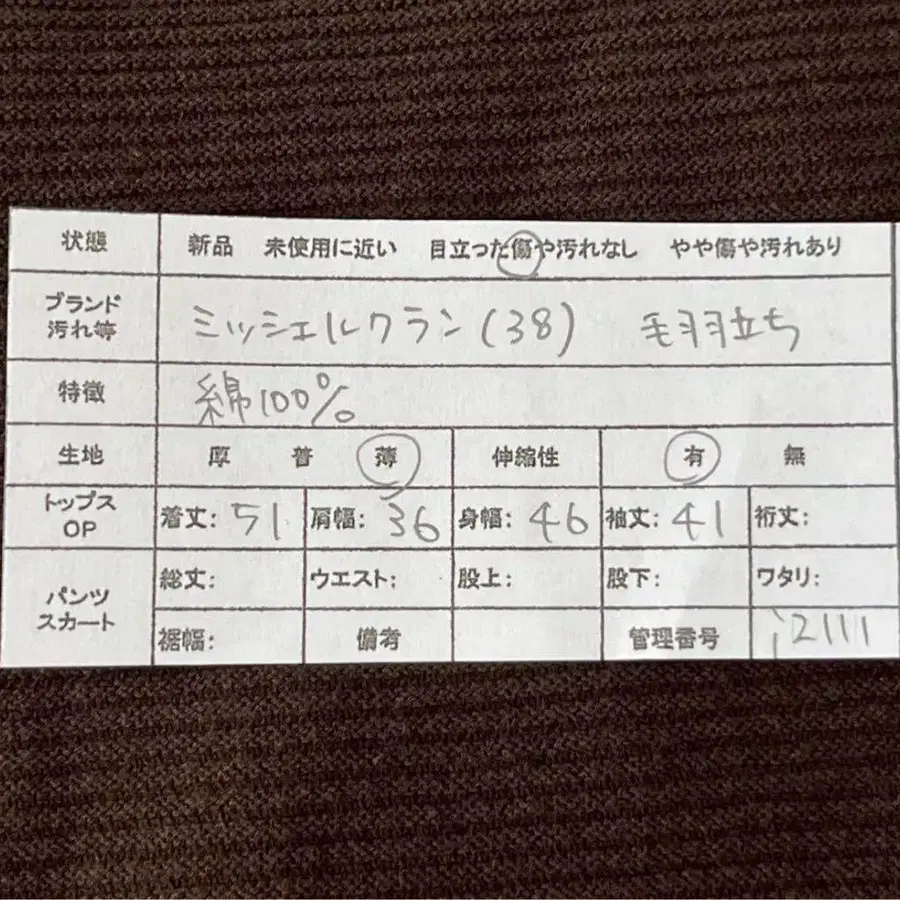 状態 新品 未使用に近い 目立った傷や汚れなし やや傷や汚れあり
ブランド
汚れ等 ミッシェルクラン(38) 毛羽立ち
特徴 綿100%
生地 厚 普 薄 伸縮性 有 無
トップス
OP 着丈: 51 肩幅: 36 身幅: 46 袖丈: 41 裄丈:
パンツ
スカート 総丈: ウエスト: 股上: 股下: ワタリ:
裾幅: 備考 管理番号 i2111